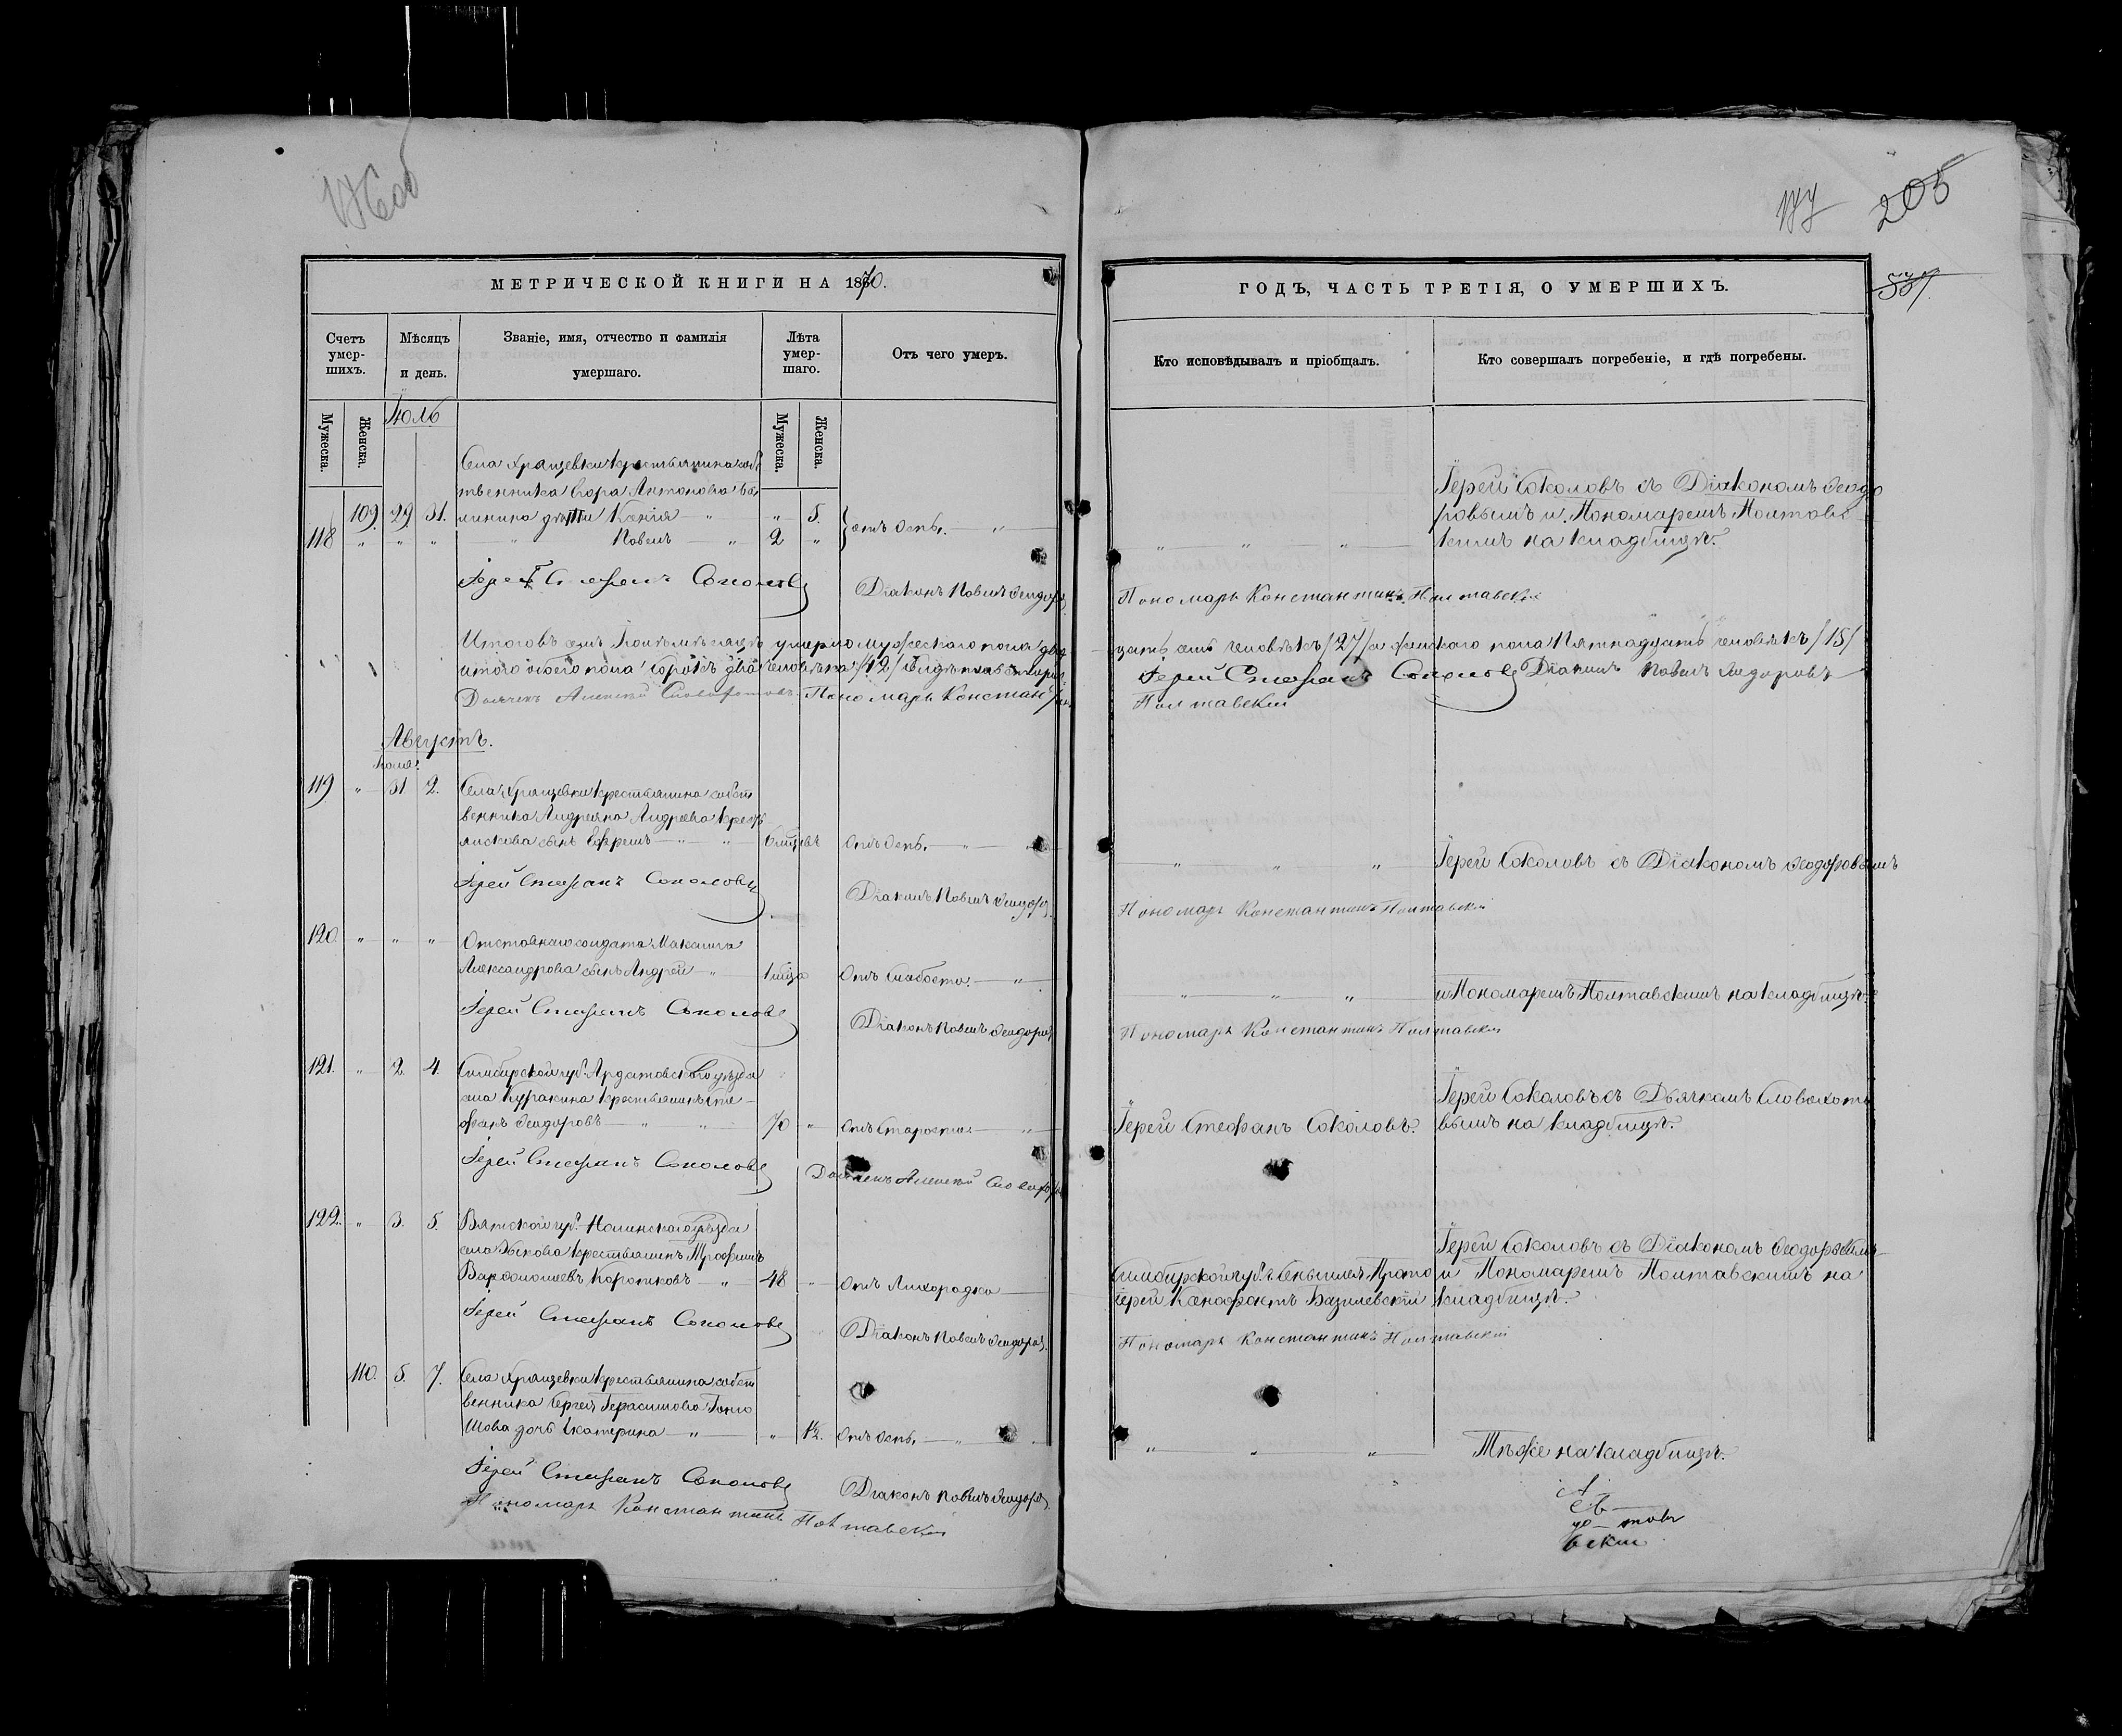 176 об
177
205
537
МЕТРИЧЕСКОЙ КНИГИ НА 1870.
ГОДЪ, ЧАСТЬ ТРЕТІЯ, О УМЕРШИХЪ.
Счетъ умер-шихъ.
Мѣсяцъ и день.
Званіе, имя, отчество и фамилія умершаго.
Лѣта умер-шаго.
Отъ чего умеръ.
Кто исповѣдывалъ и пріобщалъ.
Кто совершалъ погребеніе, и гдѣ погребены.
Мужеска.
Женска.
Мужеска.
Женска.
Іюль
Села Хрящевки крестьянина собс
твенника Антонова
109. 29 31. дѣти Ксенія — " — " 5. отъ оспы. — " —
118 " " " — " — Павелъ — " 2 "
Іерей Соколовъ съ Діакономъ Ѳеодо
ровымъ и Пономаремъ Полтавс
кимъ на кладбищѣ.
Іерей Стефанъ Соколовъ Діаконъ Павелъ Ѳеодоровъ
Пономарь Константинъ Полтавскій
Итого въ Іюлѣ мѣсяцѣ умерло мужескаго пола двад
цать семь человѣкъ /27/ а женскаго пола пятнадцать человѣкъ /15/
итого обоего пола сорокъ два человѣка /42/
Іерей Стефанъ Соколовъ Діаконъ Павелъ Ѳеодоровъ
Дьячекъ Алексѣй Словохотовъ. Пономарь Константинъ
Полтавскій
Августъ.
Іюля.
119 " 31 2. Села Хрящевки крестьянина собст
венника Андреяна Андреева
сынъ Ефремъ — " — " 6 мѣсяцевъ отъ оспы. — " —
" " " Іерей Соколовъ съ Діакономъ Ѳеодоровымъ
Іерей Стефанъ Соколовъ Діаконъ Павелъ Ѳеодоровъ
Пономарь Константинъ Полтавскій
120 " " " Отставнаго солдата Максима
Александрова сынъ Андрей — " 1 мѣсяца отъ слабости. — " —
" " " и Пономаремъ Полтавскимъ на кладбищѣ.
Іерей Стефанъ Соколовъ Діаконъ Павелъ Ѳеодоровъ
Пономарь Константинъ Полтавскій
121. " 2 4. Симбирской губ. Ардатовскаго уѣзда
села Куракина крестьянинъ Сте-
фанъ Ѳеодоровъ — " " 70 " отъ старости. — " —
Іерей Стефанъ Соколовъ.
Іерей Соколовъ съ Дьячкомъ Словохото
вымъ на кладбищѣ.
Іерей Стефанъ Соколовъ Дьячекъ Алексѣй Словохотовъ
122. " 3. 5. Вятской губ. Нолинскаго уѣзда
села крестьянинъ Трофимъ
Варфоломеевъ Коротковъ — " 48 " отъ лихорадки —
Симбирской губ. г. Сенгилея Прото
іерей Ксенофонтъ Базилевскій
Іерей Соколовъ съ Діакономъ Ѳеодоровымъ
и Пономаремъ Полтавскимъ на
кладбищѣ.
Іерей Стефанъ Соколовъ Діаконъ Павелъ Ѳеодоровъ
Пономарь Константинъ Полтавскій
110. 5. 7. Села Хрящевки крестьянина собст
венника Сергея Герасимова
дочь Екатерина — " — " 1½. отъ оспы. — " —
" " " Тѣже на кладбищѣ.
Іерей Стефанъ Соколовъ Діаконъ Павелъ Ѳеодоровъ
Пономарь Константинъ Полтавскій